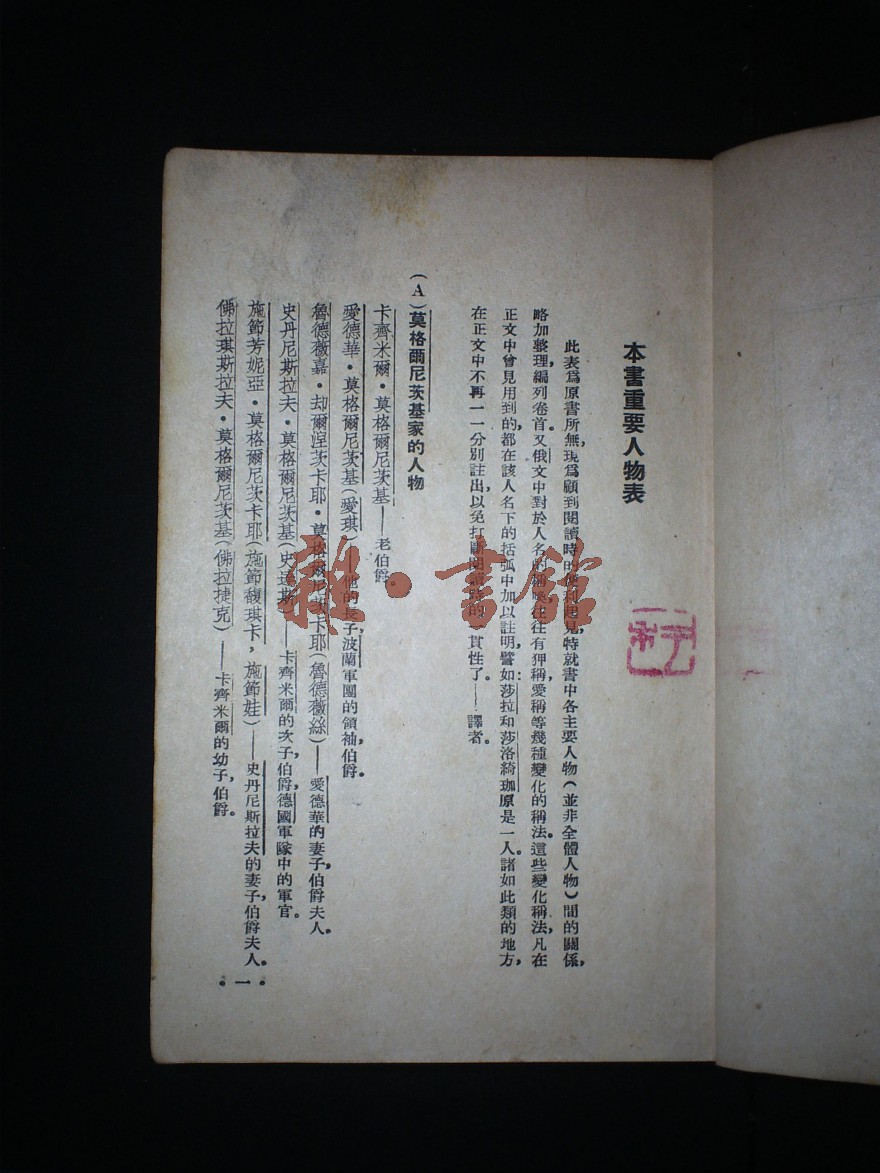 本書重要人物表
此表爲原書所無，現爲顧到閱讀時的便利起見，特就書中各主要人物（並非全體人物）間的關係，
略加整理，編列卷首。又俄文中對於人名的稱喚，往往有狎稱，愛稱等幾種變化的稱法。這些變化稱法，凡在
正文中曾見用到的，都在該人名下的括弧中加以註明，譬如：莎拉和莎洛綺珈原是一人。諸如此類的地方，
在正文中不再一一分別註出，以免打斷閱讀時的一貫性了。——譯者。
（A）莫格爾尼茨基家的人物
卡齊米爾·莫格爾尼茨基——老伯爵。
愛德華·莫格爾尼茨基（愛琪）——他的長子，波蘭軍團的領袖，伯爵。
魯德薇嘉·却爾涅茨卡耶·莫格爾尼茨卡耶（魯德薇絲）——愛德華的妻子，伯爵夫人。
史丹尼斯拉夫·莫格爾尼茨基（史達斯）——卡齊米爾的次子，伯爵，德國軍隊中的軍官。
施節芳妮亞·莫格爾尼茨卡耶（施節馥琪卡，施節娃）——史丹尼斯拉夫的妻子，伯爵夫人。
佛拉琪斯拉夫·莫格爾尼茨基（佛拉捷克）——卡齊米爾的幼子，伯爵。
·一·
雜·書館